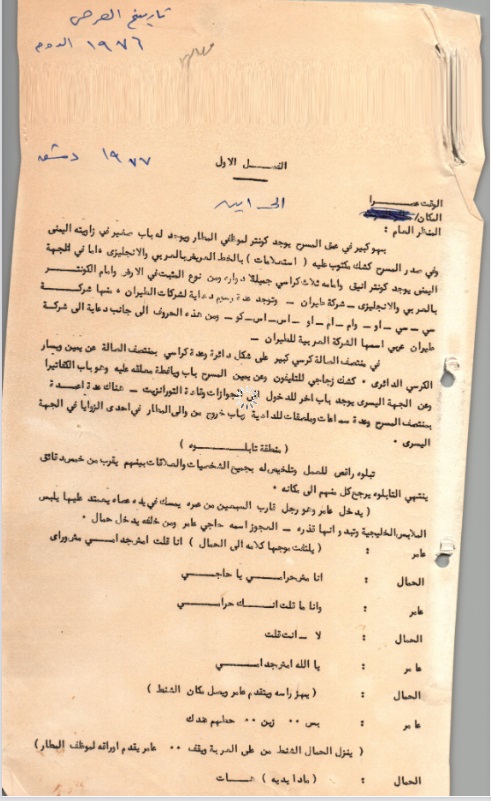 تاريخ العرض
١٩٧٦ الدوم
١٩٧٧ دمشق
الفصل الاول
الى اين
الوقت عصرا
المكان/
المنظر العام :
بهو كبير في عمق المسرح يوجد كونتر لموظفي المطار ويوجد له باب صغير في زاويته اليمنى
وفي صدر المسرح كشك مكتوب عليه ( استعلامات ) بالخط العريض بالعربي والانجليزي • اما في الجهة
اليمنى يوجد كونتر انيق وامامه ثلاث كراسي جميلة دواره ومن نوع المثبت في الارض وامام الكونتر
بالعربي والانجليزى ــ شركة طيران ــ وتوجد عدة رسوم دعاية لشركات الطيران • منها شركة
سي ــ سي ــ او ــ وام ــ ام ــ او ــ اس ــ اس ــ كو ــ ومن هذه الحروف الى جانب دعاية الى شركة
طيران عربي اسمها الشركة العربية للطيران ــ
في منتصف الصالة كرسي كبير على شكل دائرة وعدة كراسي بمنتصف الصالة عن يمين ويسار
الكرسي الدائرى • كشك زجاجي للتليفون وعن يمين المسرح باب ويافطة معلقه عليه وهو باب الكافتيرا
وعن الجهة اليسرى يوجد باب اخر للدخول الى الجوازات وقاعة الترانزيت ــ هناك عدة
بمنتصف المسرح وعدة ساعات وملصقات للدعاية وباب خروج من والى المطار في احدى الزوايا في الجهة
اليسرى •
( منطقة تابلوه )
تبلوه راقص للعمل وتلخيص له بجميع الشخصيات والعلاقات بينهم يقرب من خمس دقائق
ينتهي التابلوه يرجع كل منهم الى مكانه •
( يدخل عامر وهو رجل قارب السبعين من عمره يمسك في يده عصاه يعتمد عليها يلبس
الملابس الخليجية وتبدو انها قذره ــ العجوز اسمه حاجي عامر ومن خلفه يدخل حمال •
عامر : ( يلتفت موجها كلامه الى الحمال ) انا قلت امش جدامي مش وراى
الحمال : انا مش حرامي يا حاجي
عامر : وانا ما قلت انك حرامي
الحمال : لا ــ انت قلت
عامر : يا الله امش جدامي
الحمال : ( يهز راسه ويتقدم عامر ويصل مكان الشنط )
عامر : بس •• زين •• حطهم عندك
( ينزل الحمال الشنط من على العربة ويقف •• عامر يقدم اوراقه لموظف المطار)
الحمال : ( مادا يديه ) هات